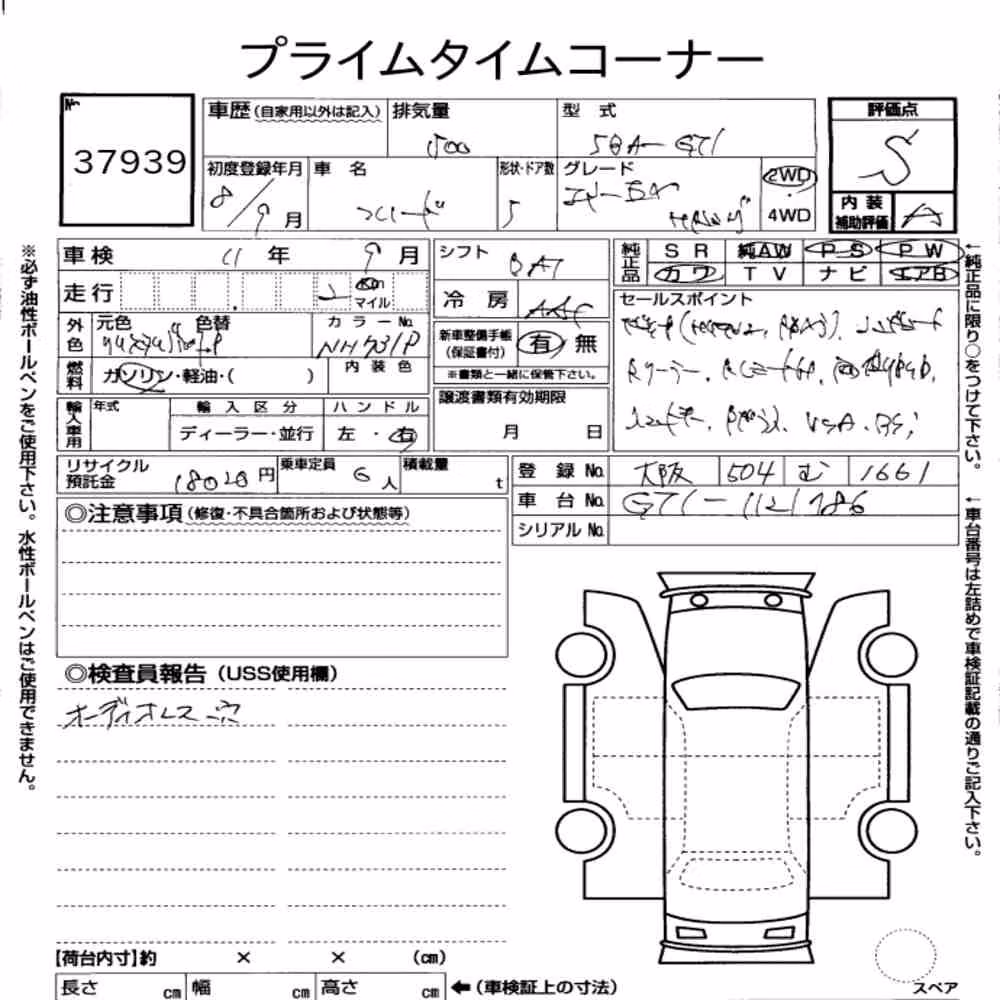 プライムタイムコーナー
№
37939
車歴(自家用以外は記入) 排気量 型 式 評価点
1500 5BA-GT1 S
初度登録年月 車 名 形状・ドア数 グレード 2WD
8/9月 フリード 5 エアーEX 4WD
内装補助評価 A
車検 11年 9月 シフト DAT
純正品 SR 純AW PS PW
カワ TV ナビ エアB
走行 2 Km マイル 冷房 AAC
セールスポイント
外色 元色 色替 カラーNo.
NH731P
新車整備手帳(保証書付) 有 無
※書類と一緒に保管下さい。
燃料 ガソリン・軽油・( ) 内装色
譲渡書類有効期限
月 日
輸入車用 年式 輸入区分 ハンドル
ディーラー・並行 左・右
リサイクル預託金 18020円 乗車定員 6人 積載量 t
登録No. 大阪 504 む 1661
車台No. GT1-1121786
シリアルNo.
◎注意事項(修復・不具合箇所および状態等)
◎検査員報告(USS使用欄)
オーディオレス穴
【荷台内寸】約 × × (cm)
長さ cm 幅 cm 高さ cm ←(車検証上の寸法)
スペア
※必ず油性ボールペンをご使用下さい。水性ボールペンはご使用できません。
←純正品に限り○をつけて下さい。
←車台番号は左詰めで車検証記載の通りご記入下さい。